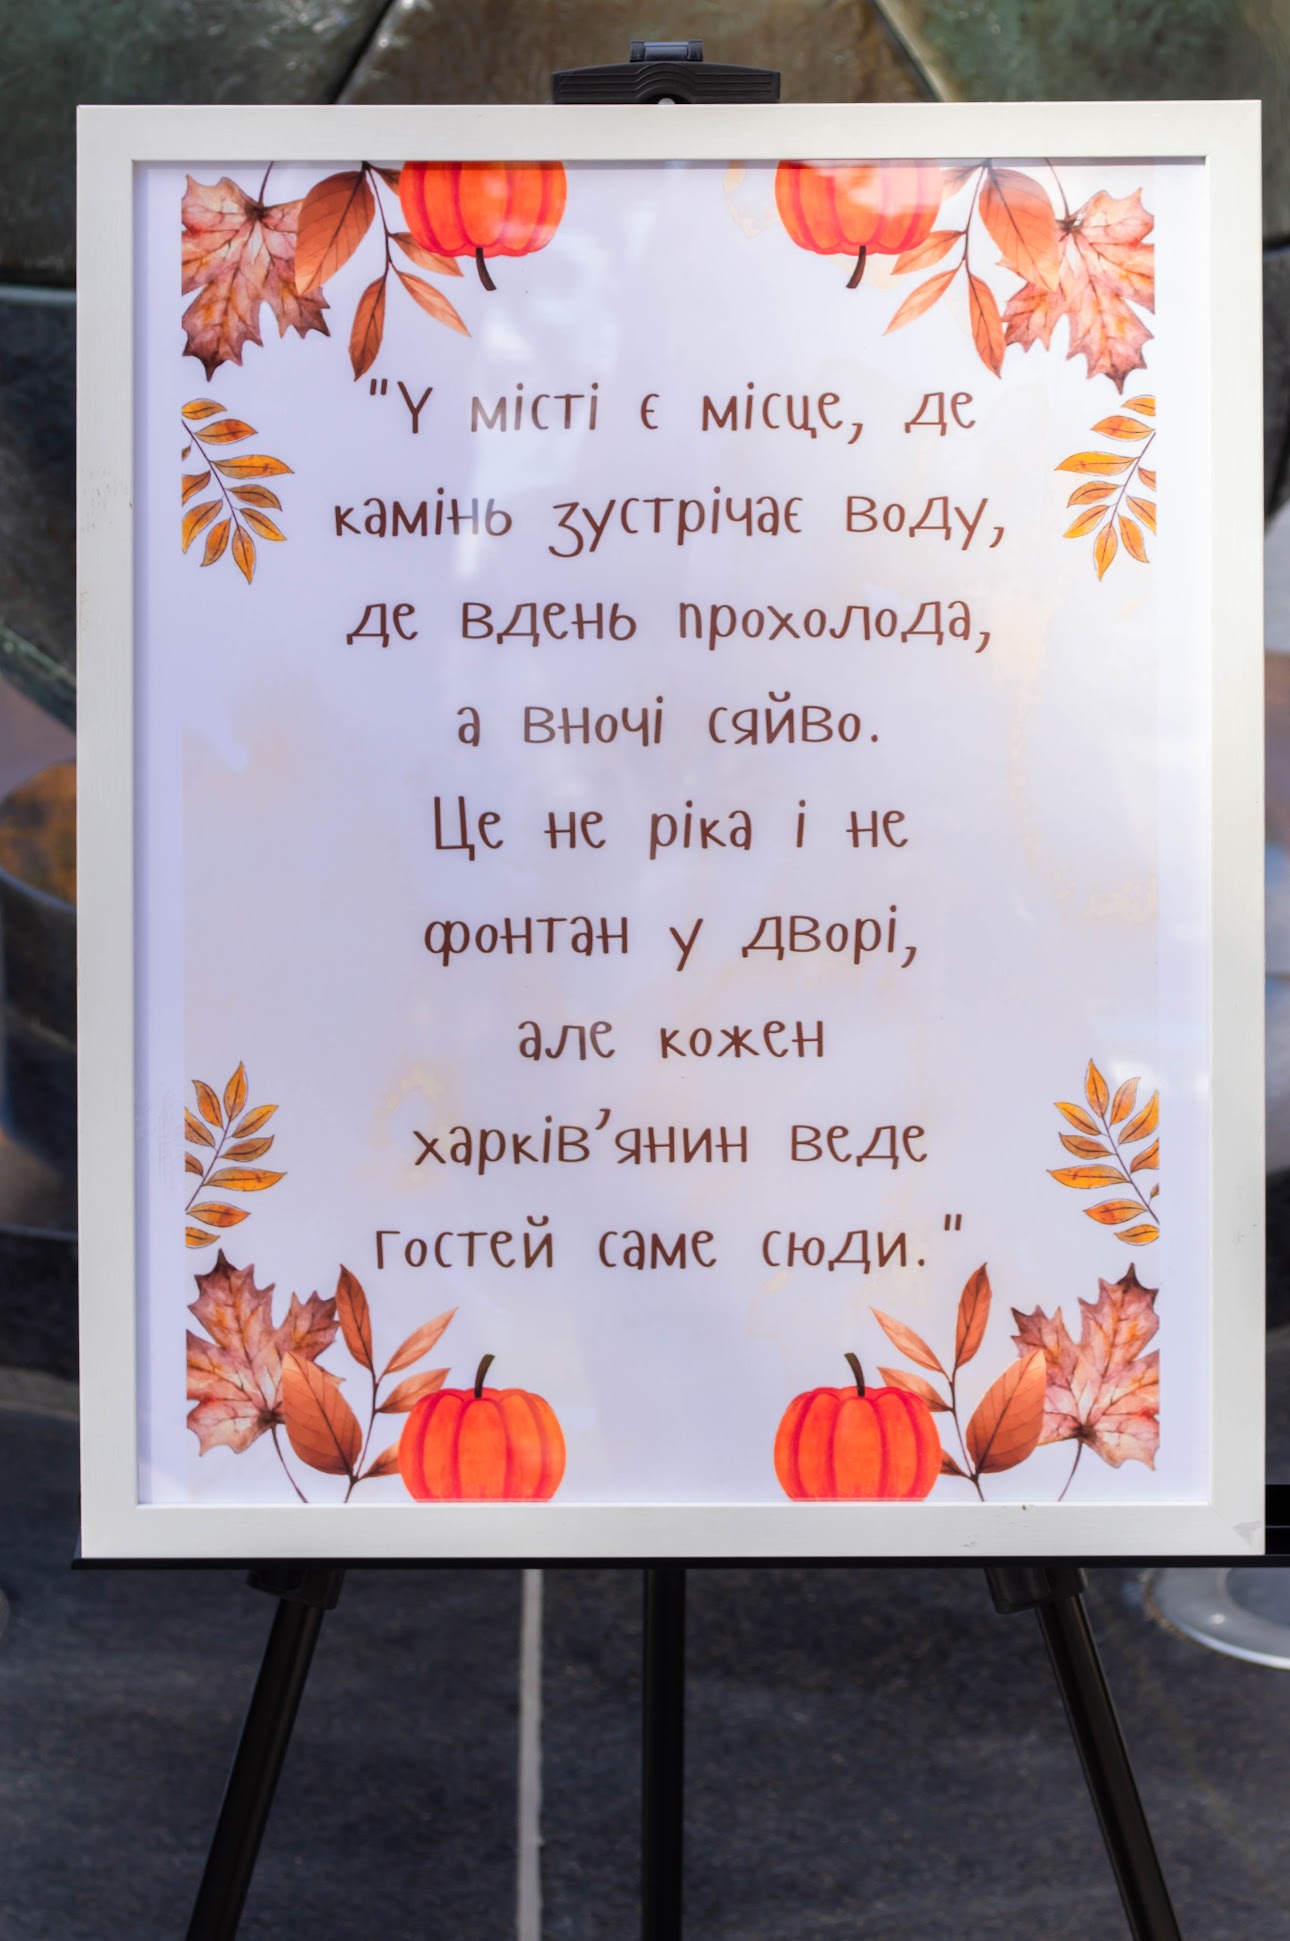 "У місті є місце, де
камінь зустрічає воду,
де вдень прохолода,
а вночі сяйво.
Це не ріка і не
фонтан у дворі,
але кожен
харків’янин веде
гостей саме сюди."